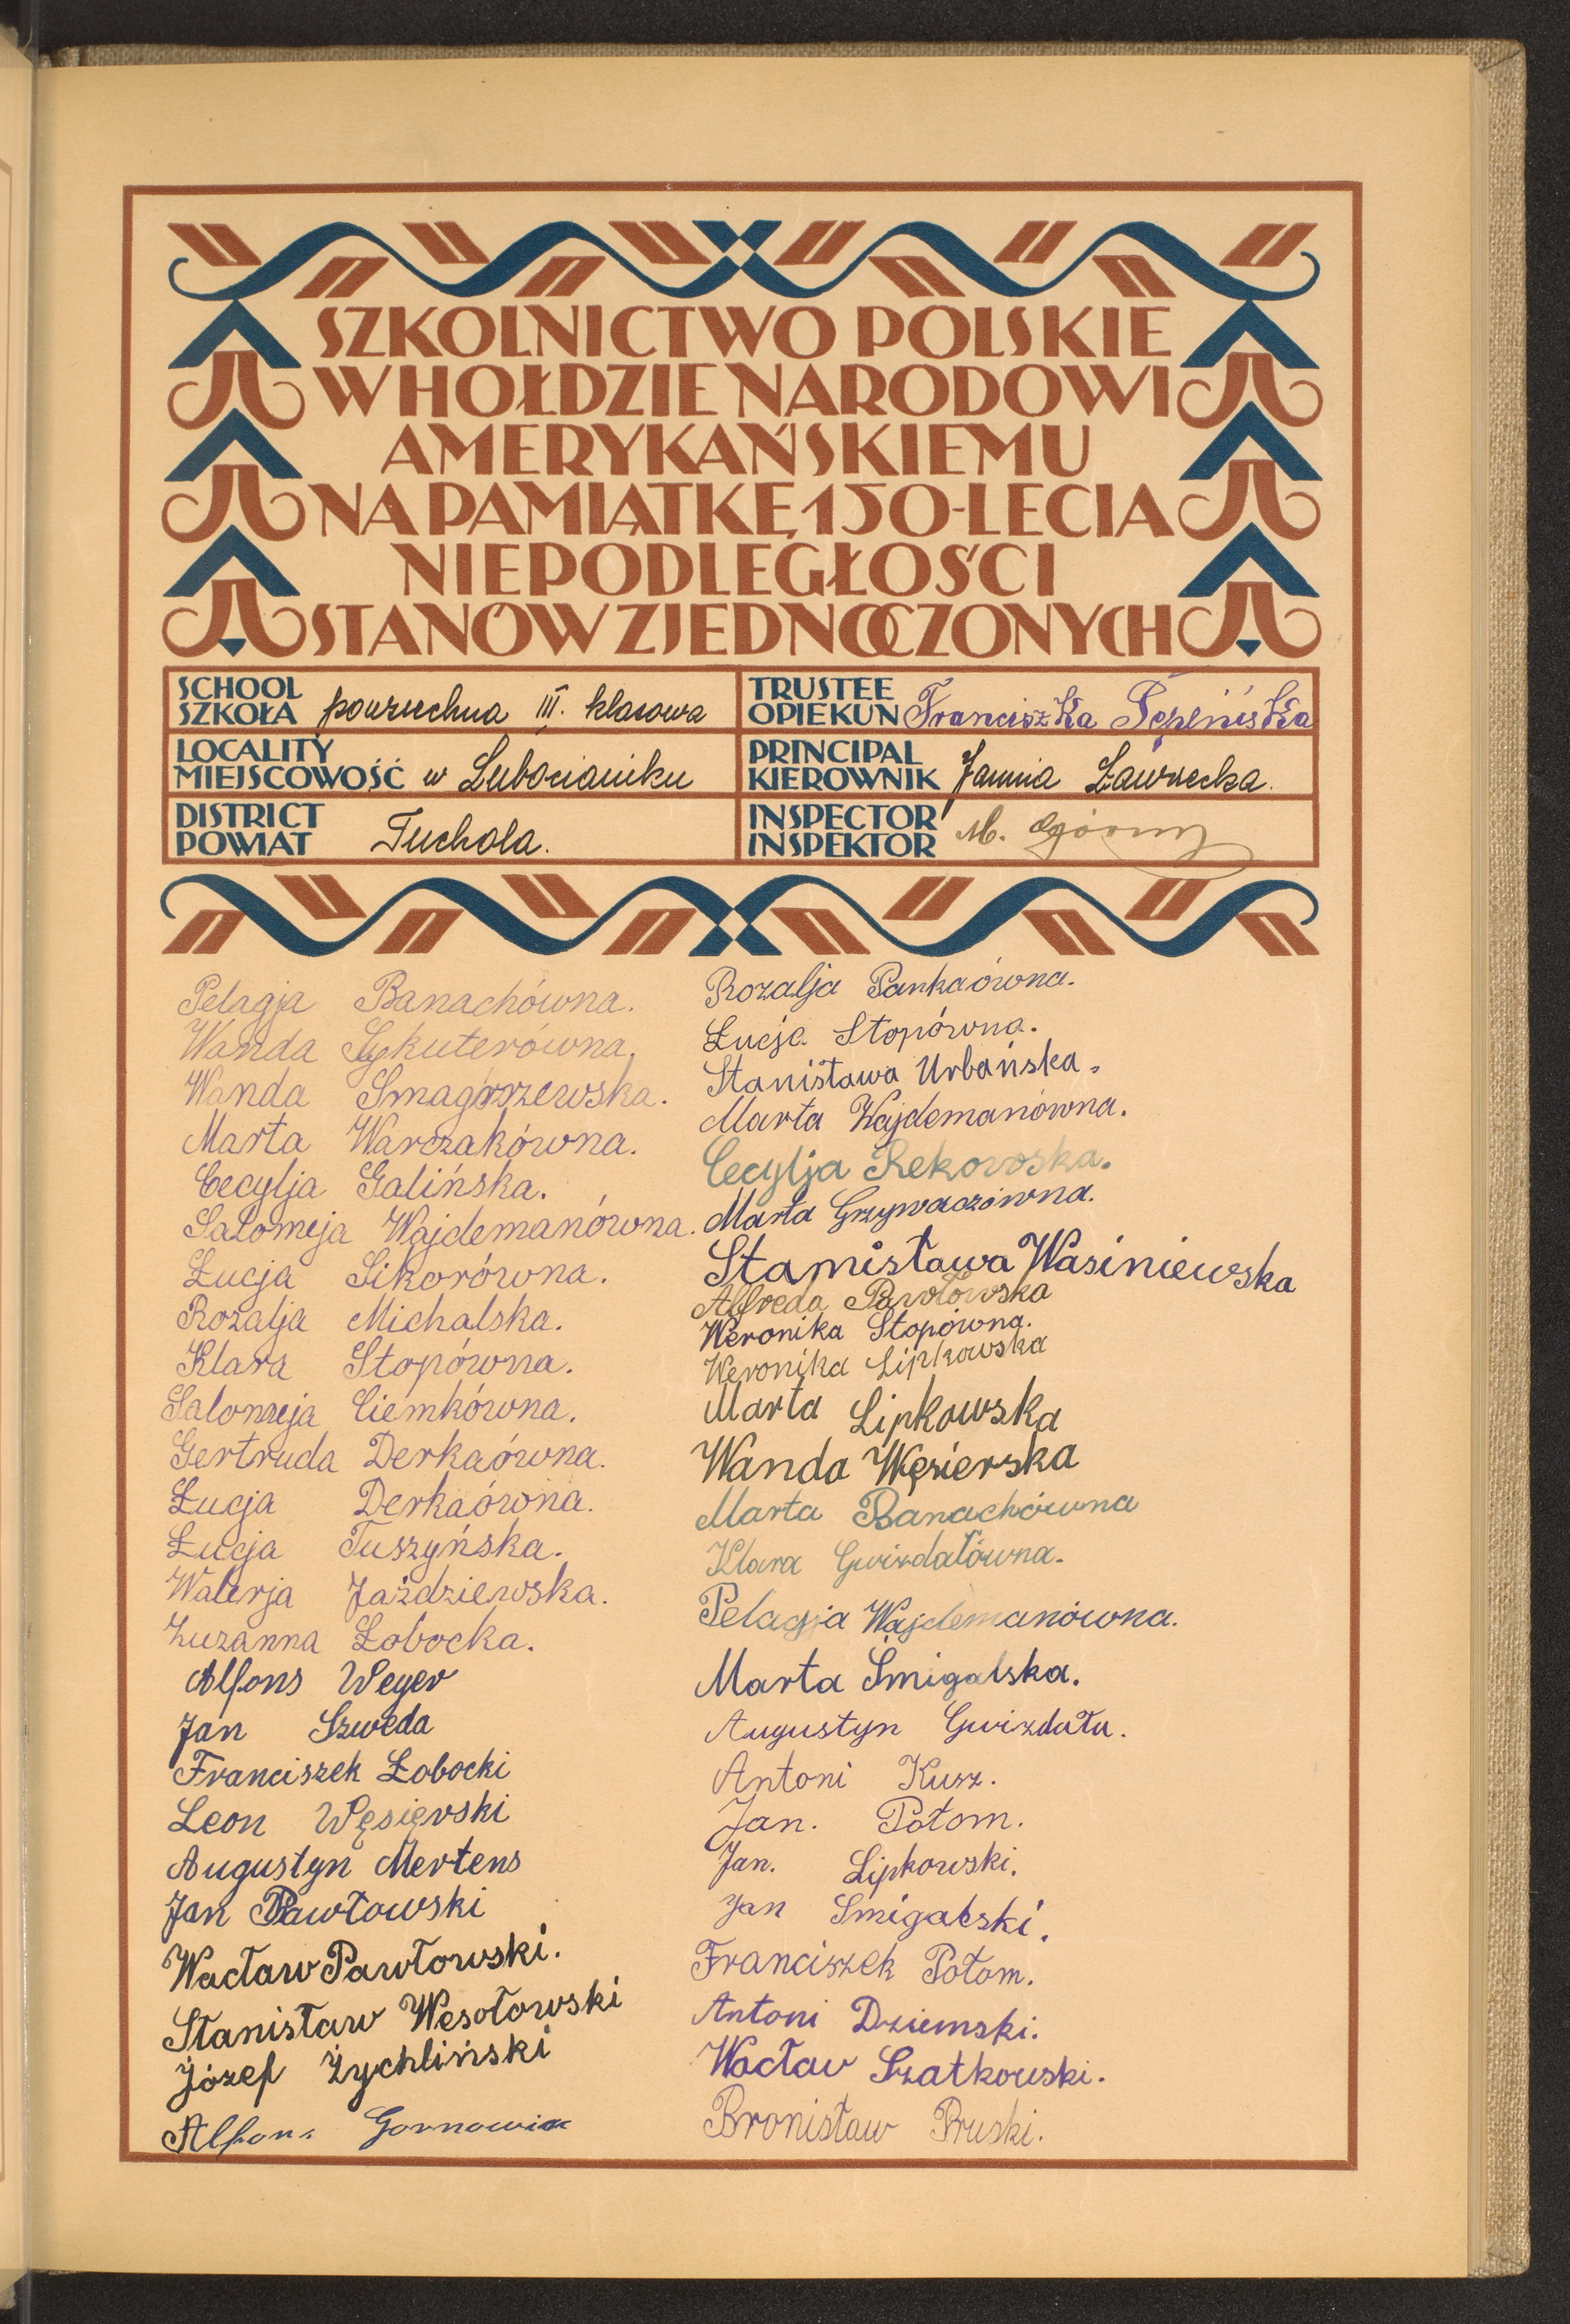 SZKOLNICTWO POLSKIE
W HOŁDZIE NARODOWI
AMERYKAŃSKIEMU
NA PAMIĄTKĘ 150-LECIA
NIEPODLEGŁOŚCI
STANÓW ZJEDNOCZONYCH
SCHOOL
SZKOŁA powszechna III. klasowa
TRUSTEE
OPIEKUN Franciszka
LOCALITY
MIEJSCOWOŚĆ w Lubocianiku
PRINCIPAL
KIEROWNIK Janina Ławrecka.
DISTRICT
POWIAT Tuchola.
INSPECTOR
INSPEKTOR M. Ogórny
Pelagja Banachówna.
Wanda Sykuterówna.
Wanda Smagorzewska.
Marta Warczakówna.
Cecylja Galińska.
Salomeja Wajdemanówna.
Łucja Sikorówna.
Rozalja Michalska.
Klara Stopówna.
Salomeja Ciemkówna.
Gertruda Derkaówna.
Łucja Derkaówna.
Łucja Tuszyńska.
Walerja Jażdziewska.
Zuzanna Łobocka.
Alfons Weyer
Jan Szweda
Franciszek Łobocki
Leon Węsierski
Augustyn Mertens
Jan Pawłowski
Wacław Pawłowski.
Stanisław Wesołowski
Józef Żychliński
Alfons Gornowicz
Rozalja Pankaówna.
Łucja Stopówna.
Stanisława Urbańska.
Marta Wajdemanówna.
Cecylja Rekowska.
Marta Grzywaczówna.
Stanisława Wasiniewska
Alfreda Pawłowska
Weronika Stopówna.
Weronika Lipkowska
Marta Lipkowska
Wanda Węsierska
Marta Banachówna
Klara Gwizdałówna.
Pelagja Wajdemanówna.
Marta Śmigalska.
Augustyn Gwizdała.
Antoni Kusz.
Jan. Potom.
Jan. Lipkowski.
Jan Smigalski.
Franciszek Potom.
Antoni Dziemski.
Wacław Szatkowski.
Bronisław Pruski.